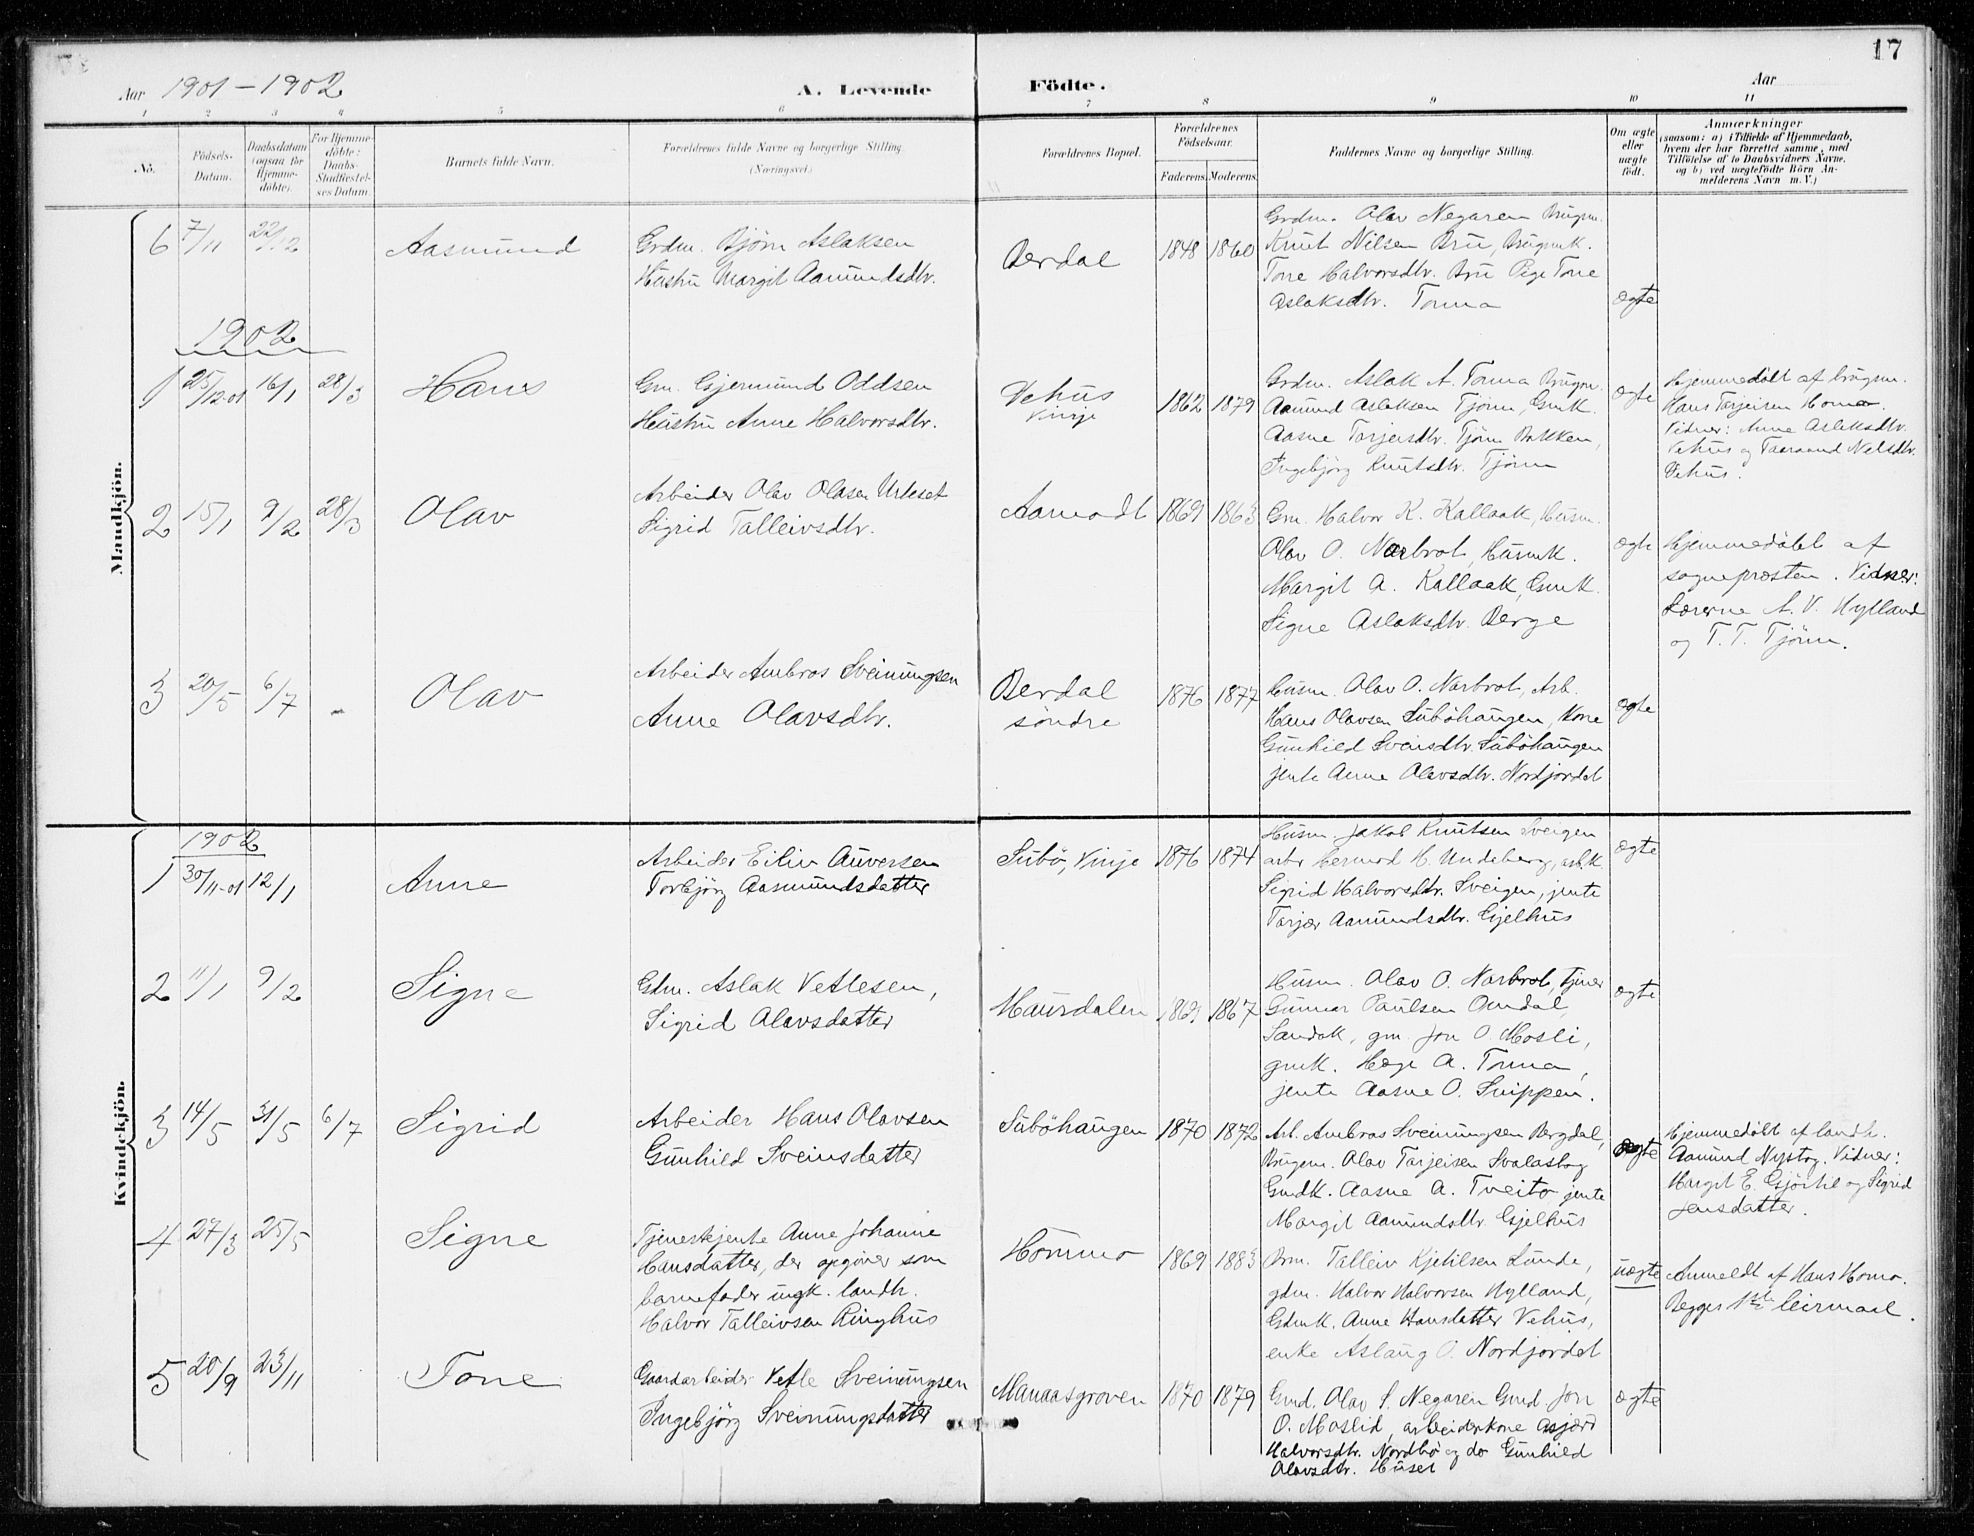 17
Aar 1901 - 1902
A. Levende Födte.
Aar
1 2 3 4 5 6 7 8 9 10 11
No.
Födsels-Datum.
Daabsdatum (ogsaa for Hjemme-döbte).
For Hjemme-döbte: Daabs-Stadfæstel-ses Datum.
Barnets fulde Navn.
Forældrenes fulde Navne og borgerlige Stilling.
(Næringsvei.)
Forældrenes Bopæl.
Forældrenes Födselsaar.
Faderens. Moderens.
Faddernes Navne og borgerlige Stilling.
Om ægte eller uægte födt.
Anmærkninger
(saasom: a) i Tilfælde af Hjemmedaab,
hvem der har forrettet samme, med
Tilföielse af to Daabsvidners Navne,
og b) ved uægtefödte Börn An-
melderens Navn m. V.)
Mandkjön.
6 7/11 22/12 Aasmund
Grdm. Björn Aslaksen
Hustru Margit Aamundsdtr.
Berdal 1848 1860
Grdm. Olav Negaren Brugm.
Knut Nilsen Bru, Brugmk.
Tone Halvorsdtr. Bru Pige Tone
Aslaksdtr. Tonna
ægte
1902
1 25/12-01 16/1 28/3 Hans
Gm. Gjermund Oddsen
Hustru Anne Halvorsdtr.
Vehus
Vinje
1862 1879
Grdm. Aslak A. Tonna Brugm.
Aamund Aslaksen Tjönn, Gmk.
Aasne Torjersdtr. Tjönn Bakken,
Ingebjörg Knutsdtr. Tjönn
ægte
Hjemmedöbt af brugm.
Hans Tarjeisen Homo.
Vidner: Anne Aslaksdtr.
Vehus og Taaraand Nelsdtr.
Vehus.
2 15/1 9/2 28/3 Olav
Arbeider Olav Olasen Urleset
Sigrid Talleivsdtr.
Aamodt 1869 1863
Gm. Halvor K. Kallaak, Husm.
Olav O. Narbrot, Husmk.
Margit A. Kallaak, Gmk.
Signe Aslaksdtr. Berge
ægte
Hjemmedöbt af
sognepresten. Vidner:
Lærerne A. V. Hylland
og T. T. Tjönn.
3 20/5 6/7 - Olav
Arbeider Ambros Sveinungsen
Anne Olavsdtr.
Berdal
söndre
1876 1877
Husm. Olav O. Narbrot, Arb.
Hans Olavsen Suböhaugen, Kone
Gunhild Sveinsdtr. Suböhaugen
jente Anne Olavsdtr. Nordjordet
ægte
Kvindekjön.
1902
1 30/11-01 12/1 Anne
Arbeider Eiliv Auversen
Torbjörg Aasmundsdatter
Subö, Vinje 1876 1874
Husm. Jakob Knutsen Sveigen
arbr Germod H. Undeberg, arbk.
Sigrid Halvorsdtr. Sveigen, jente
Tarjer Aamundsdtr. Gjelhus
ægte
2 11/1 9/2 Signe
Gdm. Aslak Vetlesen,
Sigrid Olavsdatter
Maursdalen 1869 1867
Husm. Olav O. Narbrot, tjener
Gunnar Paulsen Omdal,
Sandok, gm. Jon O. Mosli,
gmk. Hæge A. Tonna,
jente Aasne O. Snippen.
ægte
3 14/5 31/5 6/7 Sigrid
Arbeider Hans Olavsen
Gunhild Sveinsdatter
Suböhaugen 1870 1872
Arb. Ambros Sveinungsen Bergdal,
Brugem. Olav Tarjeisen Svalastog
Gmdk. Aasne A. Tveito jente
Margit Aamundsdtr. Gjelhus
ægte
Hjemmedöbt af landh.
Aamund Nystog. Vidner:
Margit E. Gjörhil og Sigrid
Jensdatter.
4 27/3 25/5 Signe
Tjenestejente Anne Johanne
Hansdatter, der opgiver som
barnefader ungk. landh.
Halvor Talleivsen Ringhus
Hommo 1869 1883
Brm. Talleiv Kjetilsen Lunde,
gdm. Halvor Halvorsen Hylland,
Gdmk. Anne Hansdatter Vehus,
enke Aslaug O. Nordjordet
uægte
Anmeldt af Hans Homo.
Begges 1ste leiermaal.
5 20/9 23/11 Tone
Gaardarbeider Vetle Sveinungsen
Ingebjörg Sveinungsdatter
Manaasgroven 1870 1879
Gmd. Olav S. Negaren Gmd Jon
O. Moslid, arbeiderkone Asjærd
Halvorsdtr. Nordbö og do Gunhild
Olavsdtr. Huset
ægte